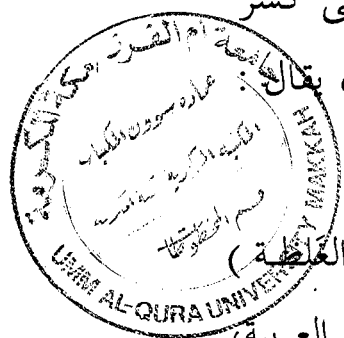 كسر
يقال :
جامعة ام القرى مكة المكرمة
عمادة شؤون المكتبات
المكتبة المركزية
قسم المخطوطات
UMM AL-QURA UNIVERSITY MAKKAH
الغَلطة )
العربية،